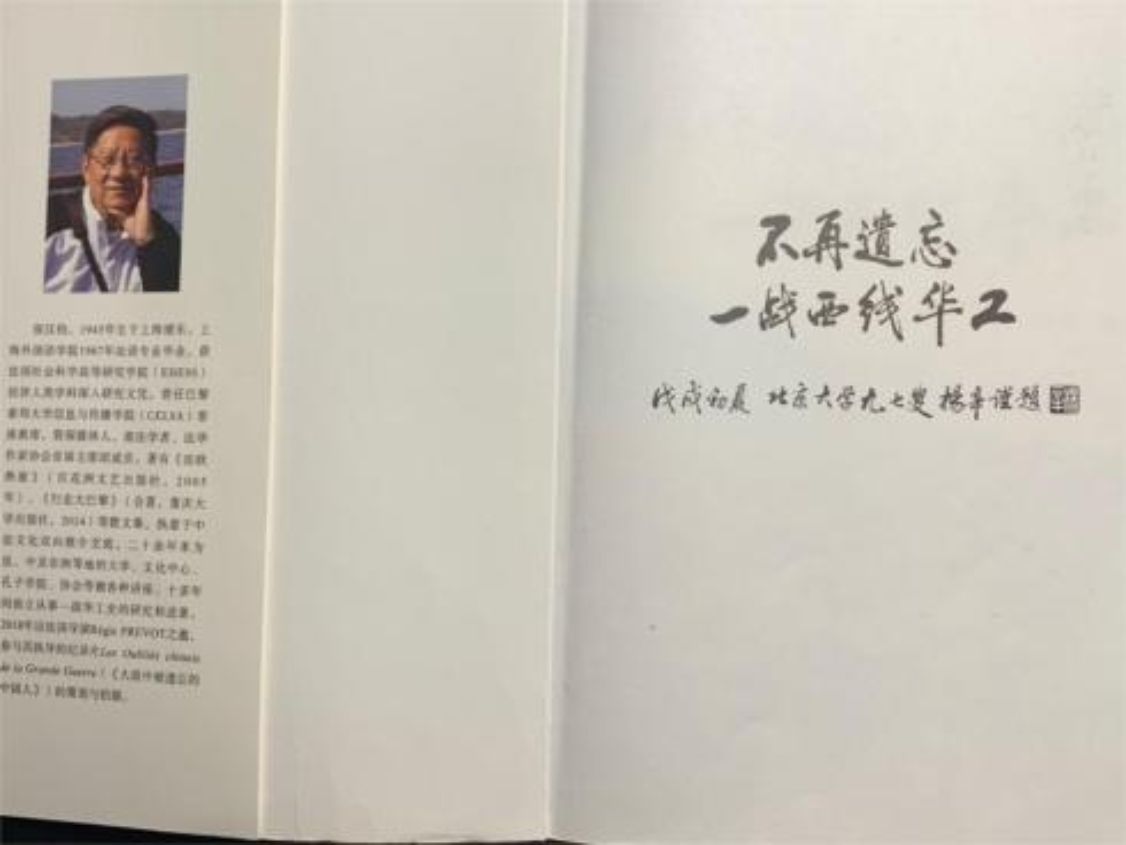 1945年生于上海浦东。上
海外国语学院1967年法语专业毕业，获
法国社会科学高等研究学院（EHESS）
经济人类学科深入研究文凭，曾任巴黎
索邦大学信息与传播学院（CELSA）客
座教席。资深媒体人、旅法学者、法华
作家协会首届主席团成员，著有
（百花洲文艺出版社，2005
年）、《行走大巴黎》（合著，重庆大
学出版社，2014）等散文集。热衷于中
法文化双向推介交流，二十余年来为
法、中及非洲等地的大学、文化中心、
孔子学院、协会等做各种讲座。十多年
间独立从事一战华工史的研究和追踪。
2018年应法国导演Régis PREVOT之邀，
参与其执导的纪录片Les Oubliés chinois
de la Grande Guerre（《大战中被遗忘的
中国人》）的策划与拍摄。
不再遗忘
一战西线华工
戊戌初夏 北京大学九七叟 杨辛谨题